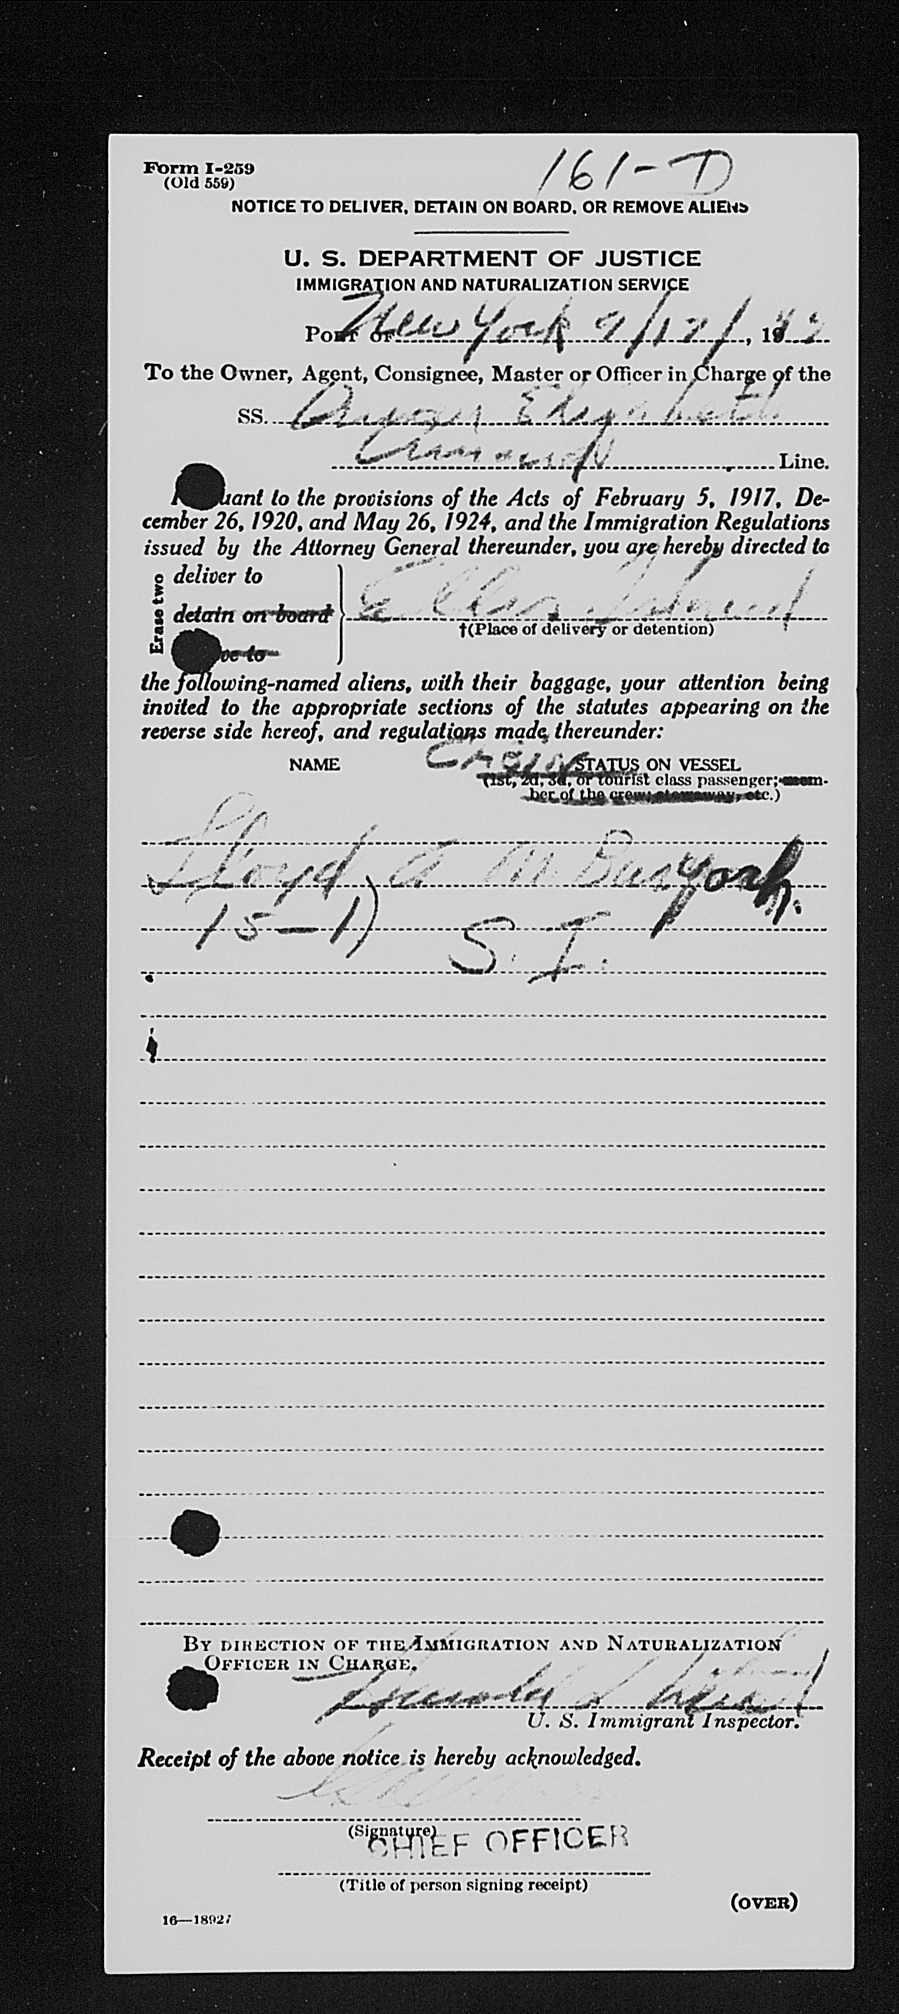 Form I-259
(Old 559)
161-D
NOTICE TO DELIVER, DETAIN ON BOARD, OR REMOVE ALIENS
U. S. DEPARTMENT OF JUSTICE
IMMIGRATION AND NATURALIZATION SERVICE
PORT OF New York 9/17/, 19
To the Owner, Agent, Consignee, Master or Officer in Charge of the
SS. Queen Elizabeth
Cunard Line.
to the provisions of the Acts of February 5, 1917, De-
cember 26, 1920, and May 26, 1924, and the Immigration Regulations
issued by the Attorney General thereunder, you are hereby directed to
Erase two
deliver to
detain on board
to
Ellis Island
†(Place of delivery or detention)
the following-named aliens, with their baggage, your attention being
invited to the appropriate sections of the statutes appearing on the
reverse side hereof, and regulations made thereunder:
NAME
CABIN
STATUS ON VESSEL
(1st, 2d, 3d, or tourist class passenger; mem-
ber of the crew; stowaway, etc.)
Lloyd, A M
15-1)
S. I.
BY DIRECTION OF THE IMMIGRATION AND NATURALIZATION
OFFICER IN CHARGE.
U. S. Immigrant Inspector.
Receipt of the above notice is hereby acknowledged.
(Signature)
CHIEF OFFICER
(Title of person signing receipt)
(OVER)
16—18927